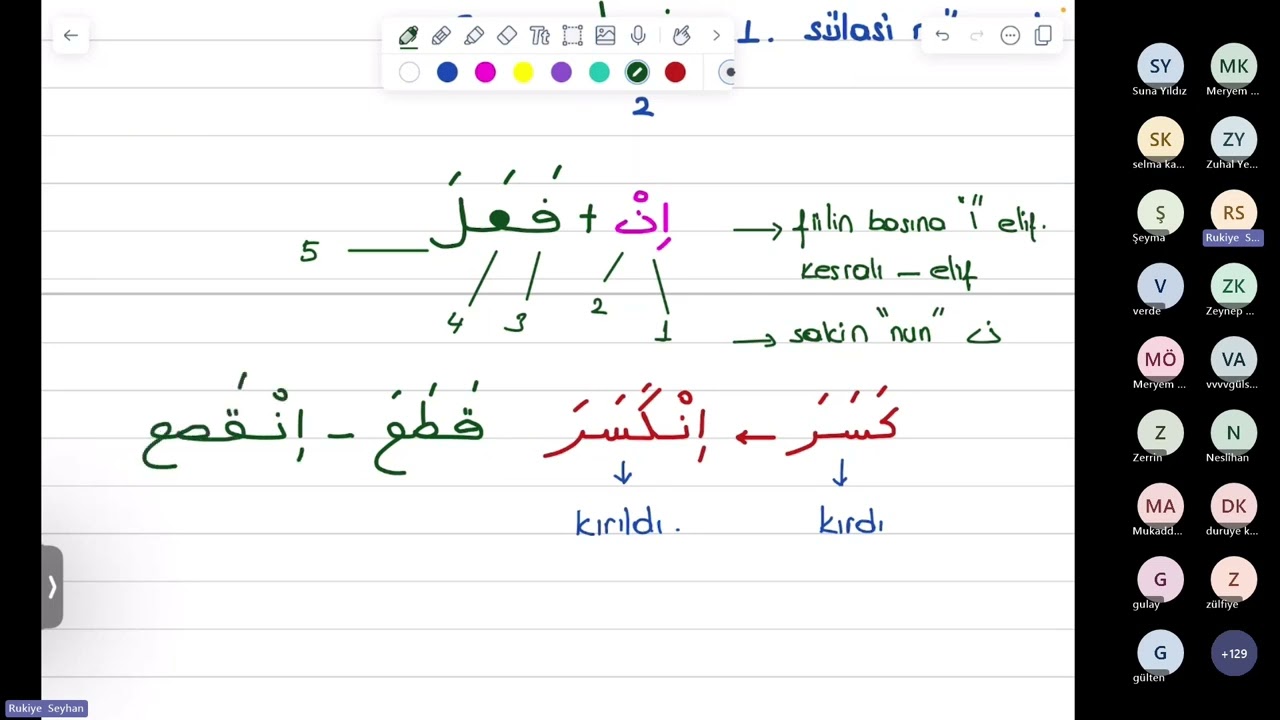 1. sülasi
2
إِنْ + فَعَلَ
5
4 3 2 1
→ fiilin başına "إ" elif.
kesralı – elif
→ sakin "nun" ن
كَسَرَ ← إِنْكَسَرَ
قَطَعَ – إِنْقَطع
kırdı
kırıldı.
SY MK
Suna Yıldız Meryem ...
SK ZY
selma ka... Zuhal Ye...
Ş RS
Şeyma Rukiye S...
V ZK
verde Zeynep ...
MÖ VA
Meryem ... vvvvgüls...
Z N
Zerrin Neslihan
MA DK
Mukadd... duruye k...
G Z
gulay zülfiye
G +129
gülten
Rukiye Seyhan